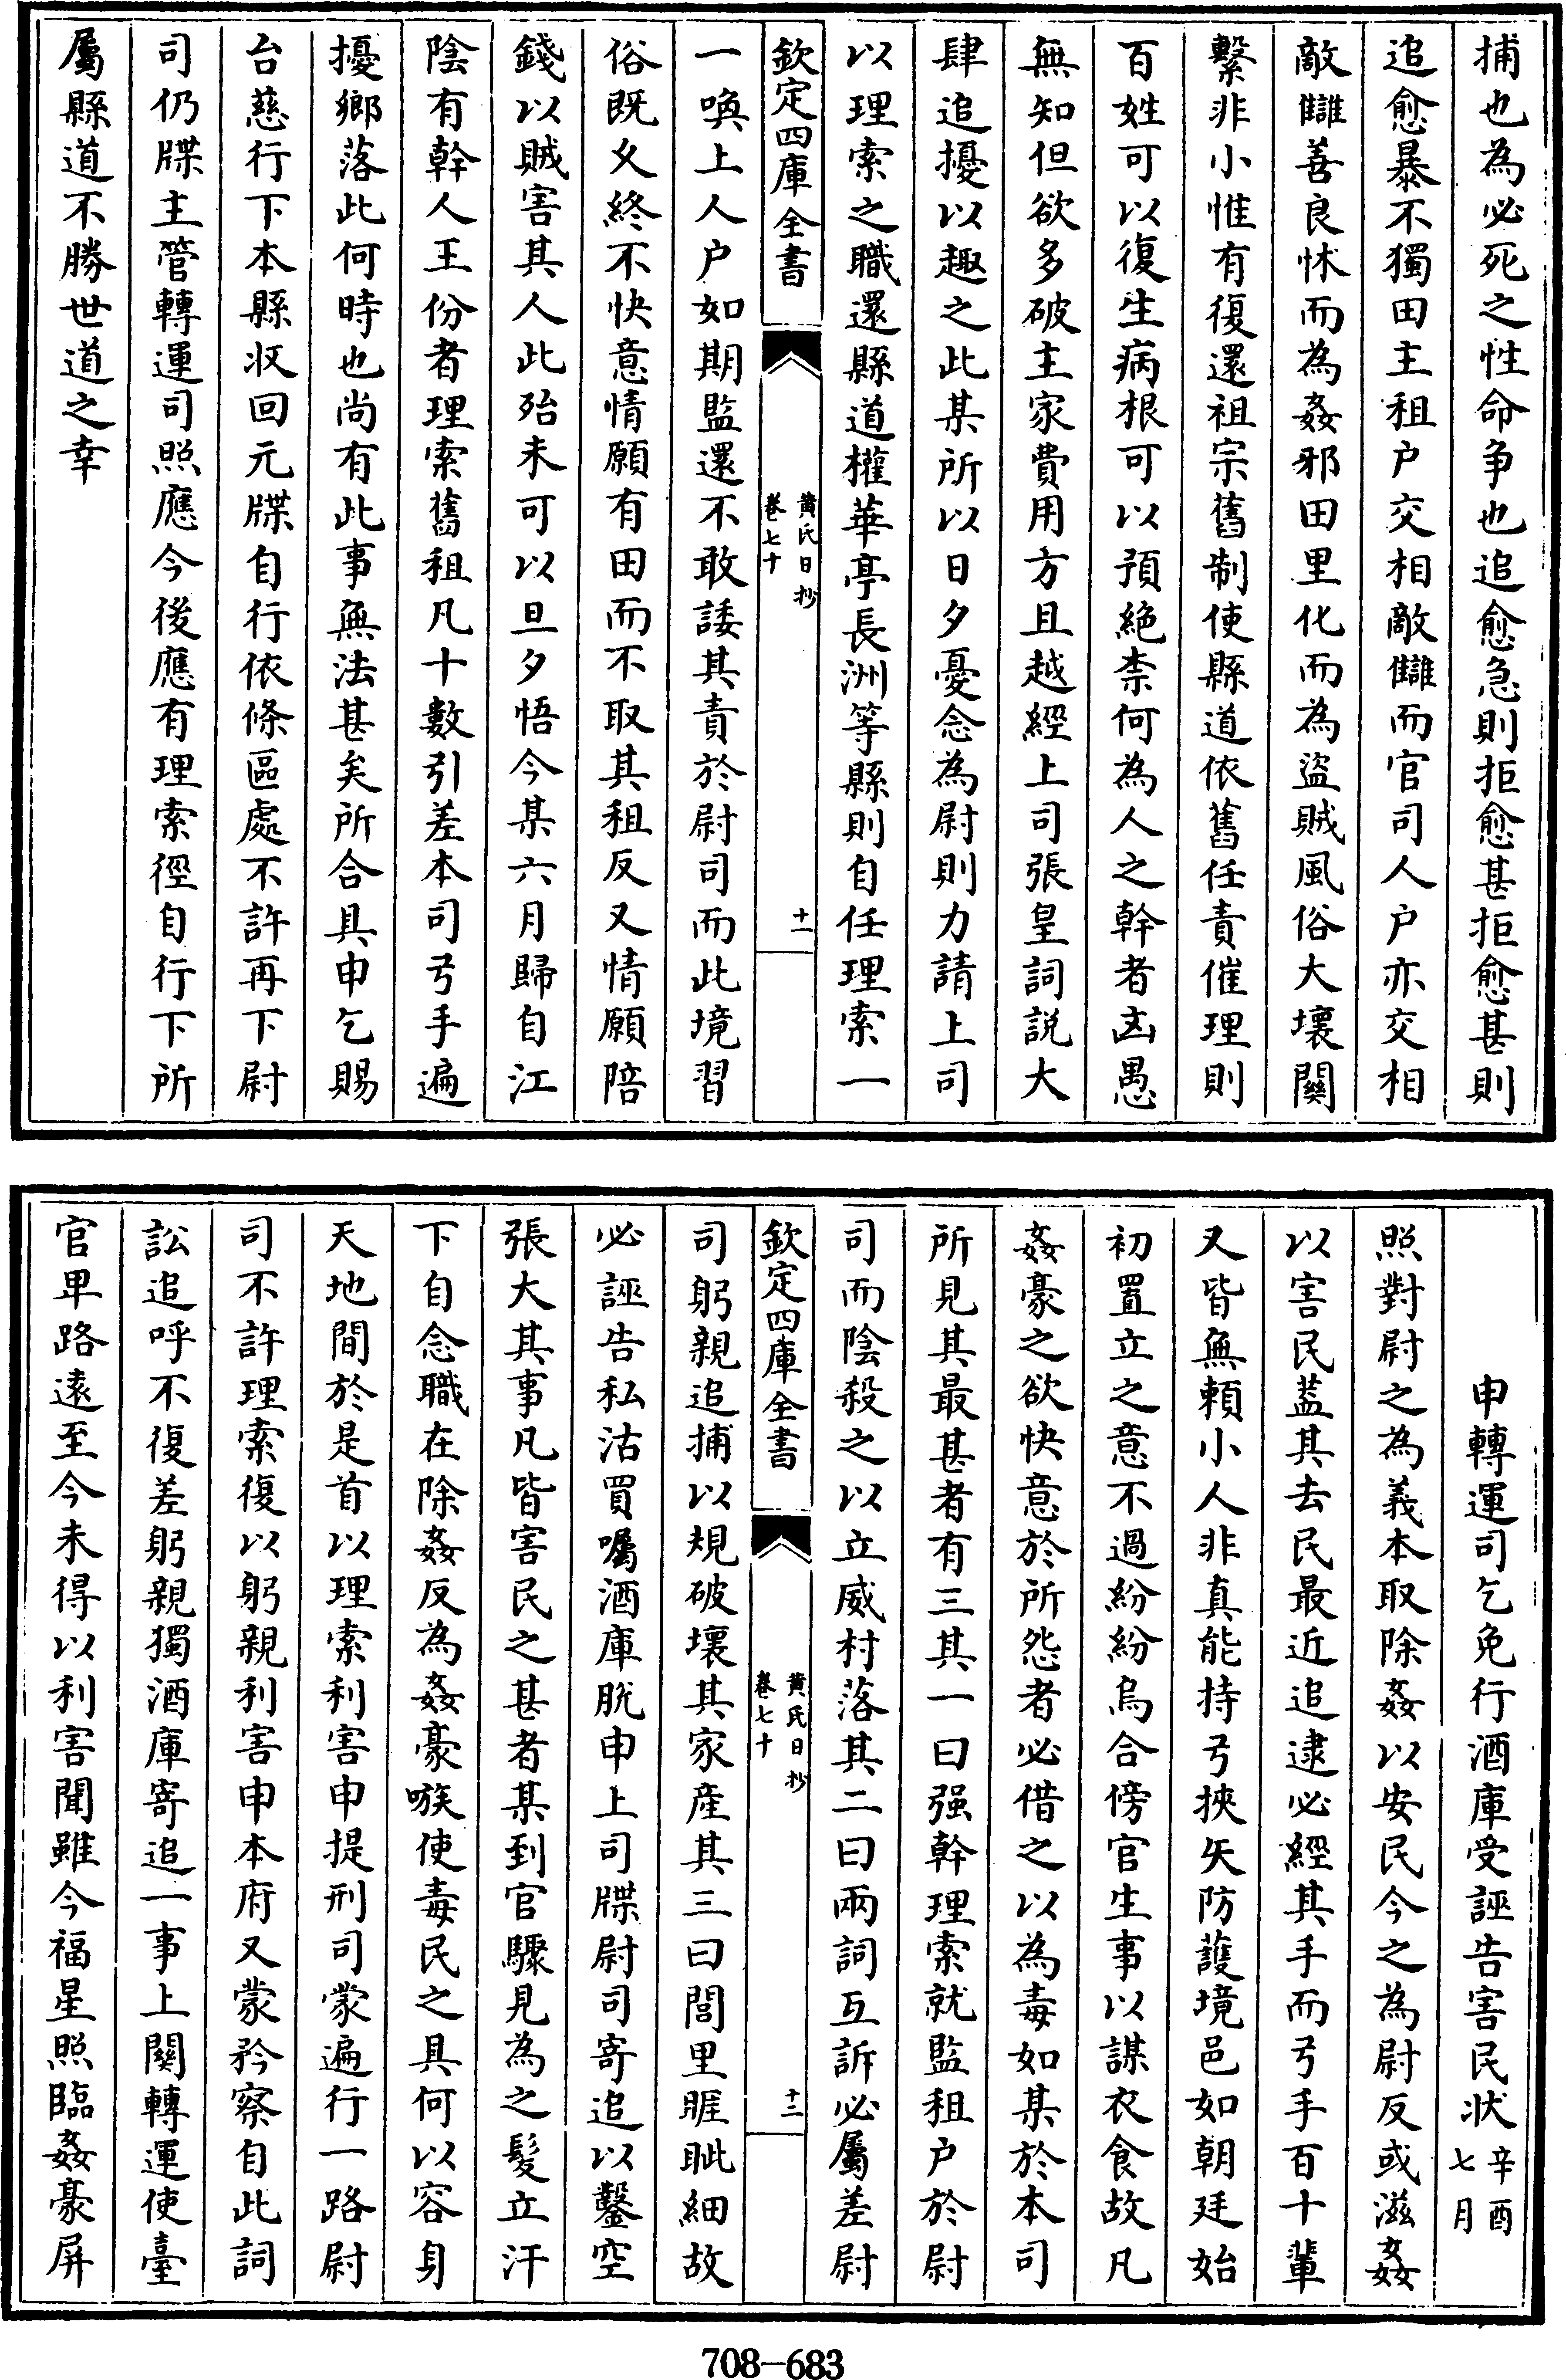 捕也為必死之性命爭也追愈急則拒愈甚拒愈甚則
追愈暴不獨田主租户交相敵讎而官司人户亦交相
敵讎善良怵而為姦邪田里化而為盜賊風俗大壞關
繫非小惟有復還祖宗舊制使縣道依舊任責催理則
百姓可以復生病根可以預絶柰何為人之幹者凶愚
無知但欲多破主家費用方且越經上司張皇詞説大
肆追擾以趣之此某所以日夕憂念為尉則力請上司
以理索之職還縣道權華亭長洲等縣則自任理索一
欽定四庫全書
黄氏日抄
卷七十
十一
一喚上人户如期監還不敢諉其責於尉司而此境習
俗既乆終不快意情願有田而不取其租反又情願陪
錢以賊害其人此殆未可以旦夕悟今某六月歸自江
陰有幹人王份者理索舊租凡十數引差本司弓手遍
擾鄉落此何時也尚有此事無法甚矣所合具申乞賜
台慈行下本縣收回元牒自行依條區處不許再下尉
司仍牒主管轉運司照應今後應有理索徑自行下所
屬縣道不勝世道之幸
申轉運司乞免行酒庫受誣告害民状辛酉七月
照對尉之為義本取除姦以安民今之為尉反或滋姦
以害民葢其去民最近追逮必經其手而弓手百十輩
又皆無頼小人非真能持弓挾矢防護境邑如朝廷始
初置立之意不過紛紛烏合傍官生事以謀衣食故凡
姦豪之欲快意於所怨者必借之以為毒如某於本司
所見其最甚者有三其一曰强幹理索就監租户於尉
司而陰殺之以立威村落其二曰兩詞互訴必屬差尉
欽定四庫全書
黄氏日抄
卷七十
十二
司躬親追捕以規破壞其家産其三曰閭里睚眦細故
必誣告私沽買囑酒庫脱申上司牒尉司寄追以鑿空
張大其事凡皆害民之甚者某到官驟見為之髮立汗
下自念職在除姦反為姦豪嗾使毒民之具何以容身
天地間於是首以理索利害申提刑司蒙遍行一路尉
司不許理索復以躬親利害申本府又蒙矜察自此詞
訟追呼不復差躬親獨酒庫寄追一事上關轉運使臺
官卑路逺至今未得以利害聞雖今福星照臨姦豪屏
708-683